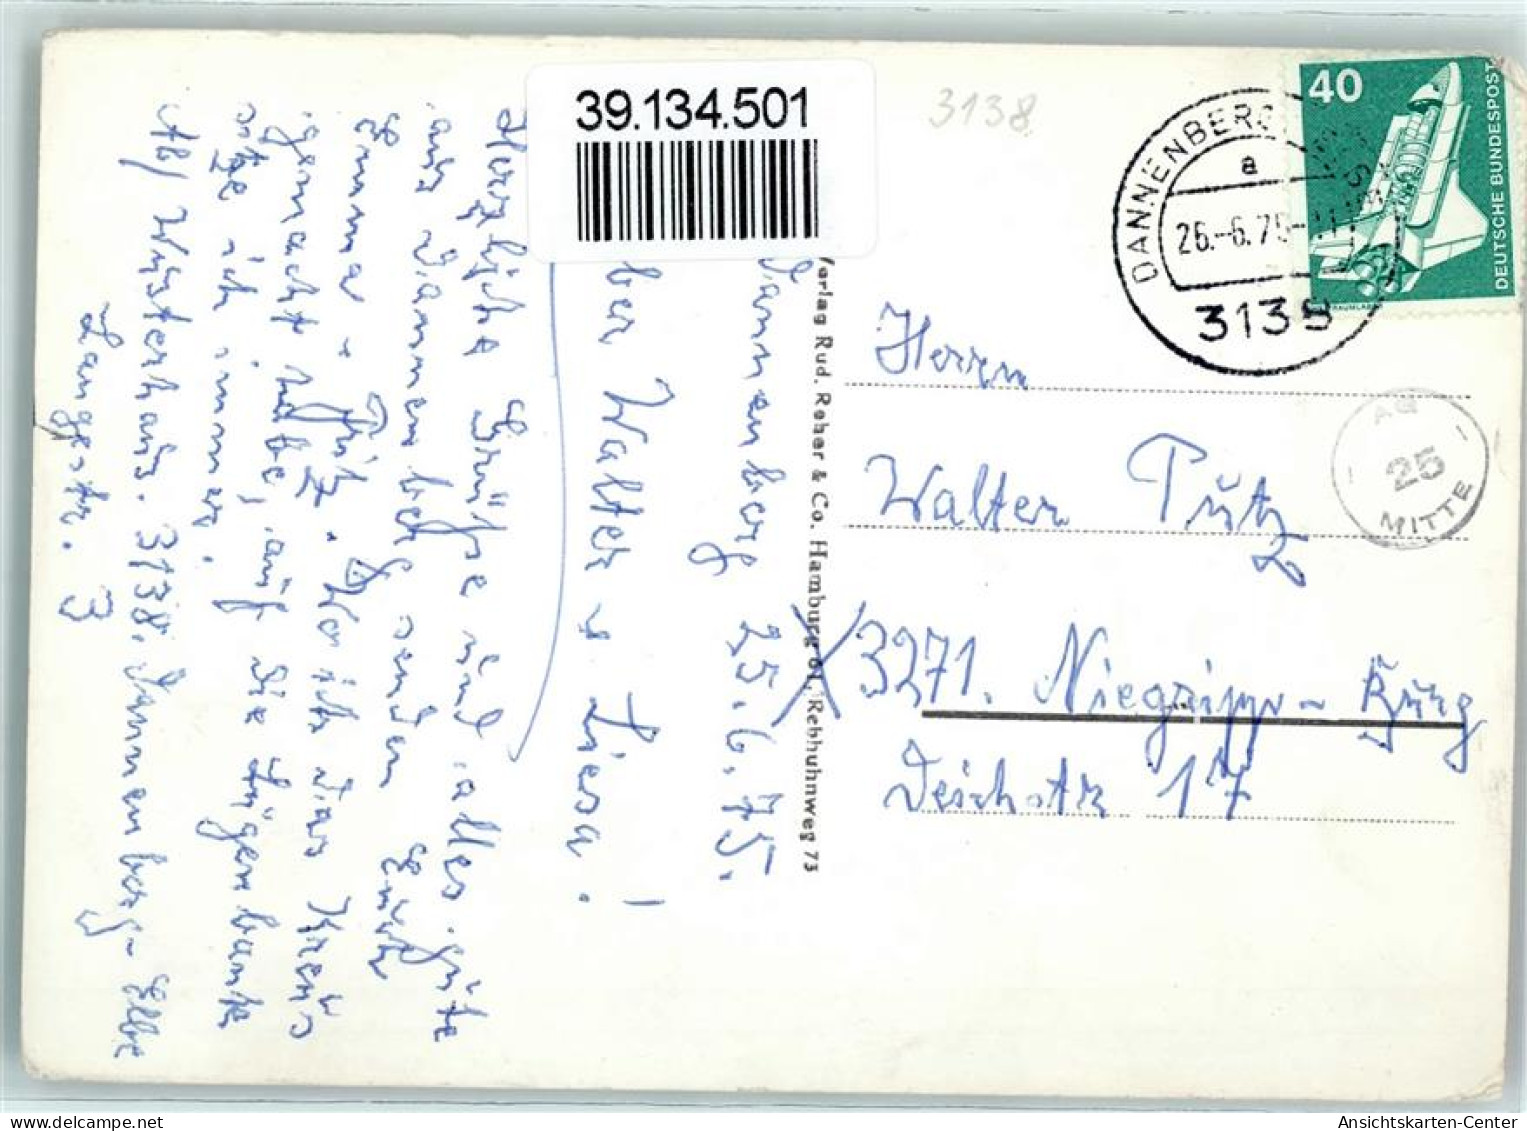 39.134.501
3138
40
DEUTSCHE BUNDESPOST
DANNENBERG
a
26.-6.75-
3138
AG
25
MITTE
Dannenberg 25.6.75.
ber Walter u Liesa!
Herzliche Grüße und alles gute
aus Dannenberg senden Euch
Emma u Fritz. Wo ich das Kreus
gemacht habe, auf die Lügenbank
sitze ich immer.
Abs/ Wüsterhaus. 3138. Dannenberg-Elbe
Langestr. 3
Verlag Rud. Reher & Co. Hamburg 61, Rebhuhnweg 73
Herren
Walter Pütz
X 3271. Niegripp-Burg
Deichstr 17
Ansichtskarten-Center